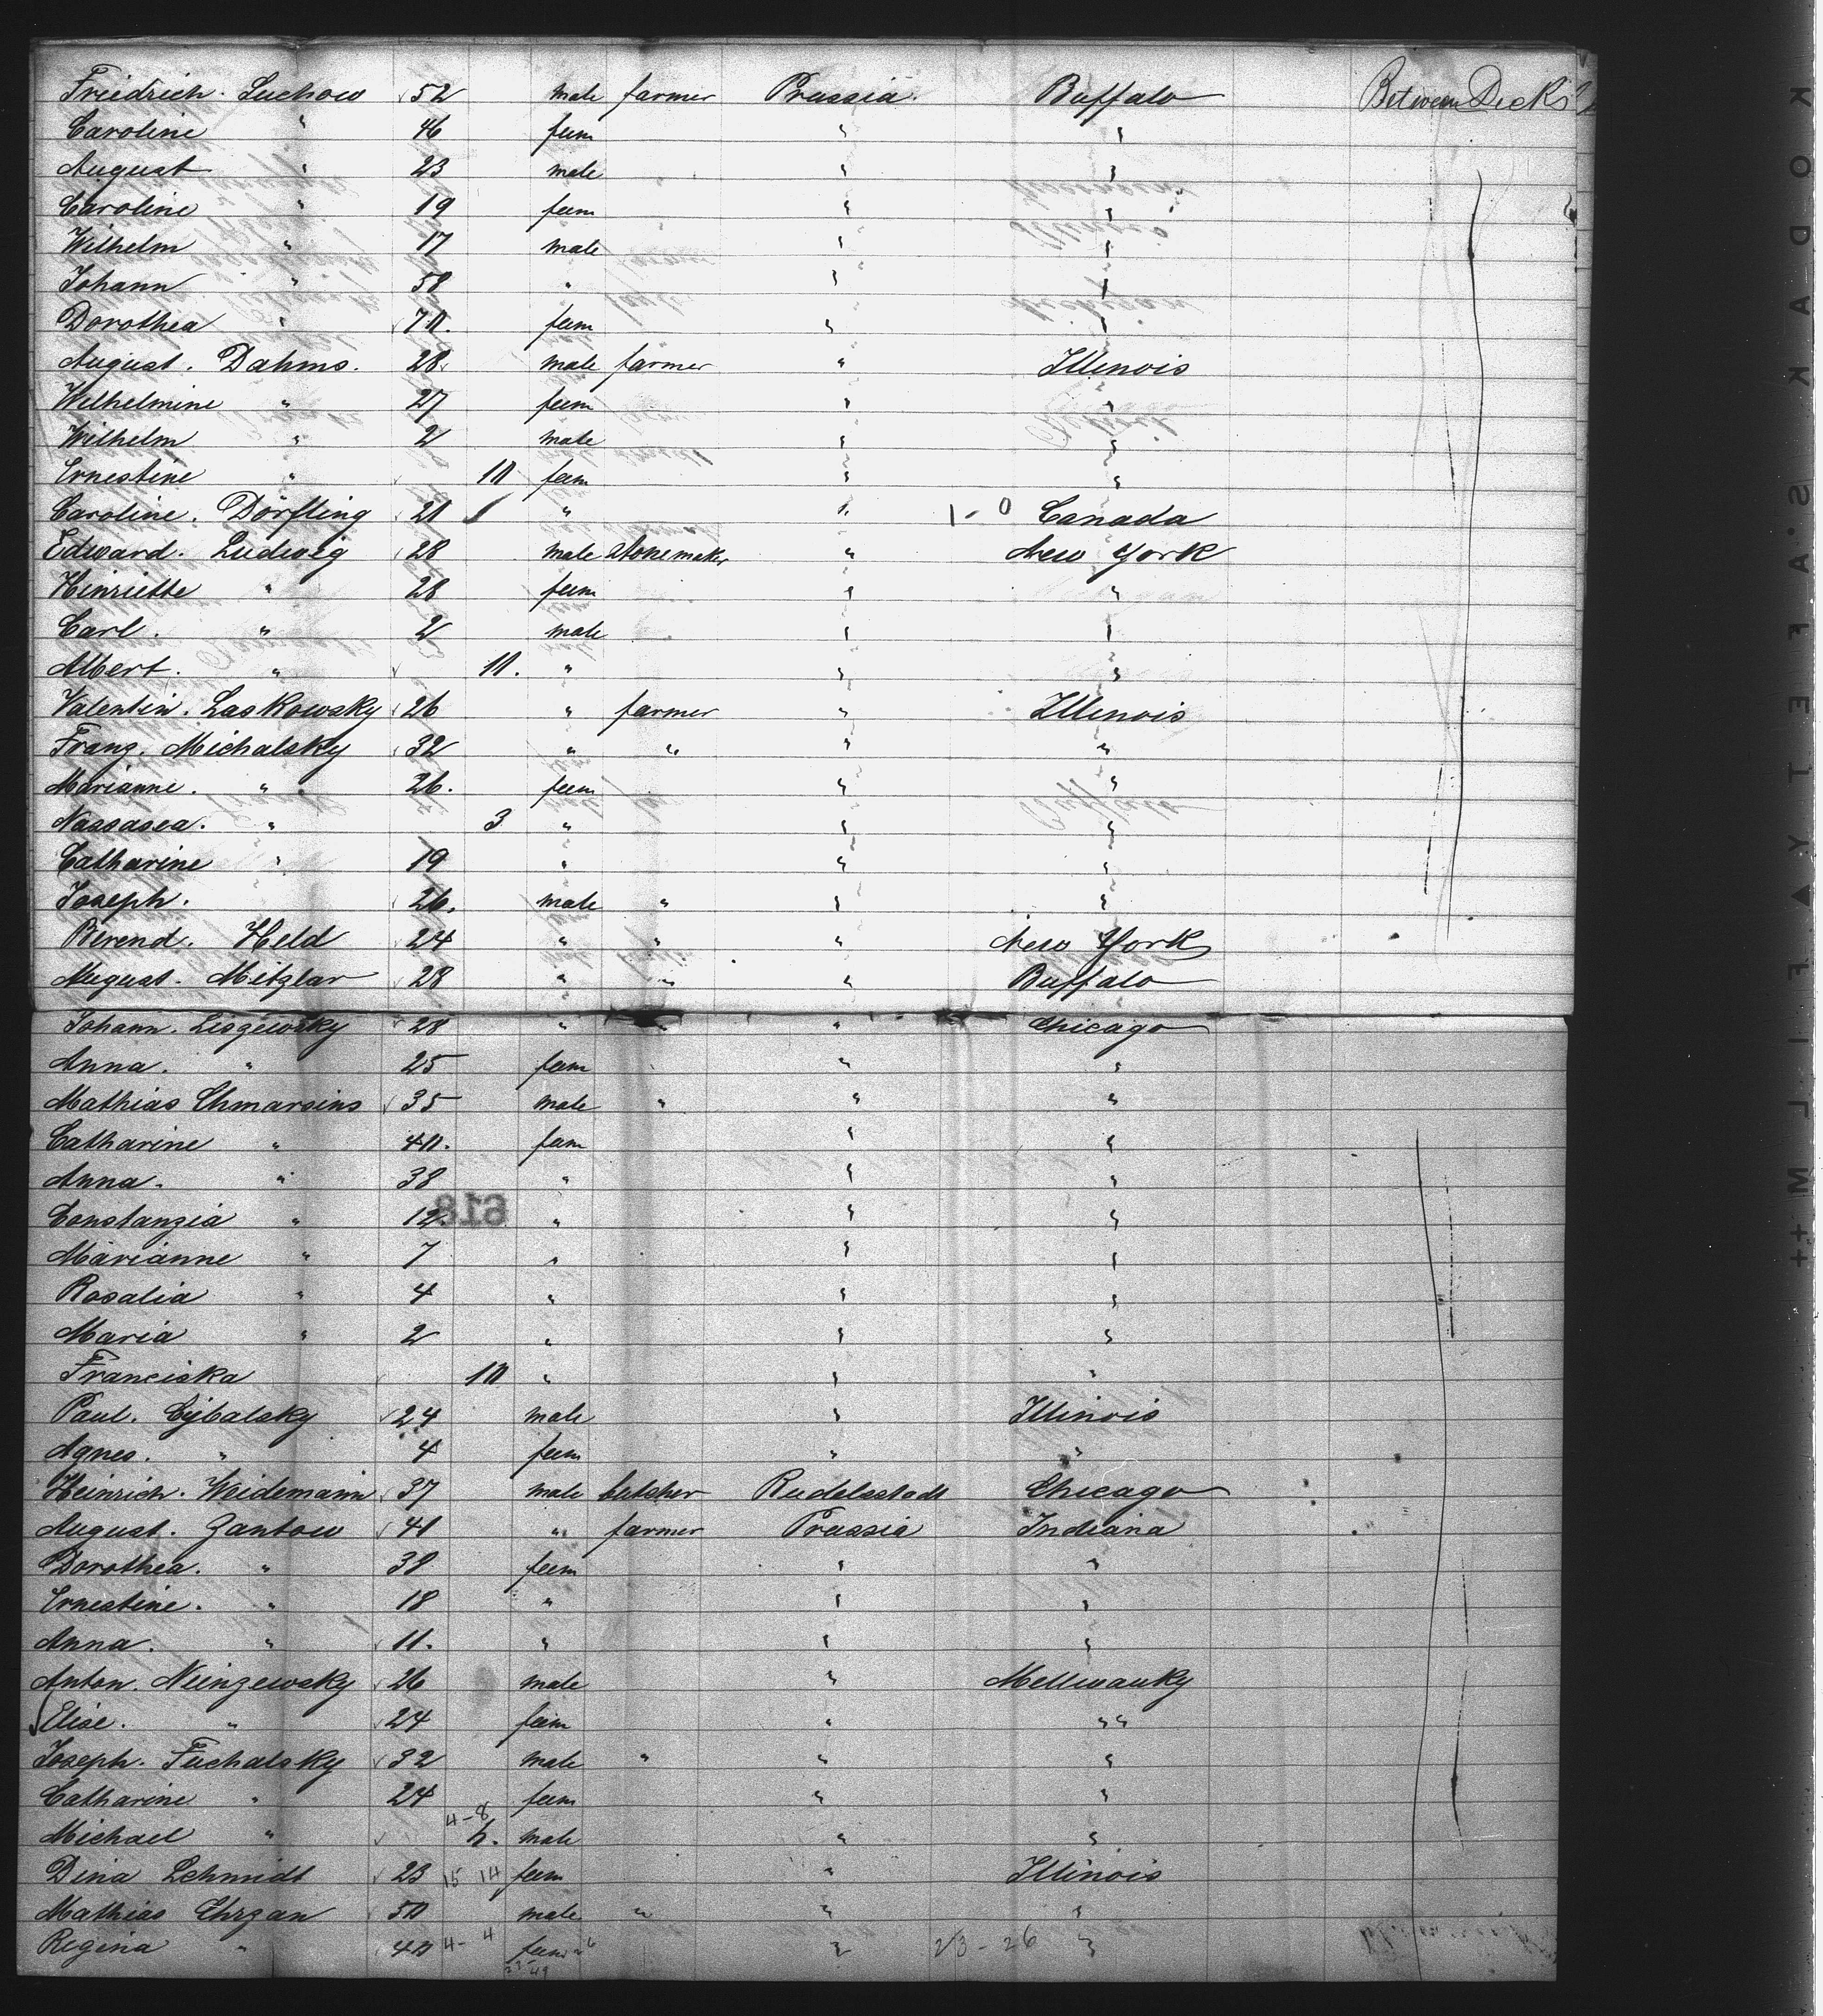 Friedrich. Luchow 52 male farmer Prussia. Buffalo Between Decks
Caroline " 46 fem " "
August " 23 male " "
Caroline " 19 fem " "
Wilhelm " 17 male " "
Johann " 58 " " "
Dorothea " 70. fem " "
August. Dahms. 28. male farmer " Illenois
Wilhelmine " 27 fem " "
Wilhelm " 2 male " "
Ernestine " 10 fem " "
Caroline. Dörfling 20 " " 1-0 Canada
Edward. Ludwig 28 male stonemaker " New York
Hinriette " 28 fem " "
Carl. " 2 male " "
Albert. " 10. " " "
Valentin. Laskowsky 26 " farmer " Illenois
Franz. Michalsky 32 " " " "
Marianne. " 26. fem " "
Nassasea. " 3 " " "
Catharine " 19 " " "
Joseph. 26. male " " "
Berend. Held 24 " " " New York
August. Mitzlar 28 " " " Buffalo
Johann. Lisgewsky 28 " " " Chicago
Anna. " 25 fem " "
Mathias Chmarsins 35 male " " "
Catharine " 40. fem " "
Anna. " 38 " " "
Constanzia " 12 " " "
618
Marianne " 7 " " "
Rosalia " 4 " " "
Maria " 2 " " "
Franciska 10 " " "
Paul. Cybalsky 24 male " Illinois
Agnes. " 4 fem " "
Heinrich. Weidemann 37 male butcher Rudolsstadt Chicago
August. Zantow 41 " farmer Prussia Indiana
Dorothea. " 38 fem " "
Ernestine. " 18 " " "
Anna. " 11. " " "
Anton. Neinzewsky 26 male " Mellwauky
Elise. " 24 fem " "
Joseph. Fuchalsky 32 male " " "
Catharine " 24 fem " "
4-8
Michael " 6. male " "
Dina Schmidt 23 15 14 fem " Illinois
Mathias Chrzan 50 male " " "
Regina " 40 4-4 fem " 23-26 "